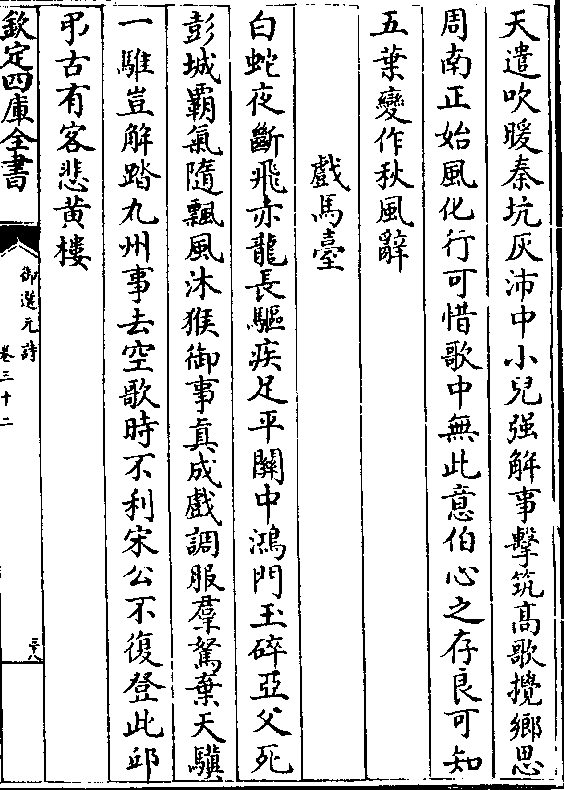 天遣吹暖秦坑灰沛中小兒强解事擊筑髙歌攪鄉思
周南正始風化行可惜歌中無此意伯心之存良可知
五葉變作秋風辭
戲馬臺
白蛇夜斷飛赤龍長驅疾足平關中鴻門玉碎亞父死
彭城霸氣隨飄風沐猴御事真成戲調服羣駑棄天驥
一騅豈解踏九州事去空歌時不利宋公不復登此邱
弔古有客悲黄樓
欽定四庫全書
御選元詩
卷三十二
三十八